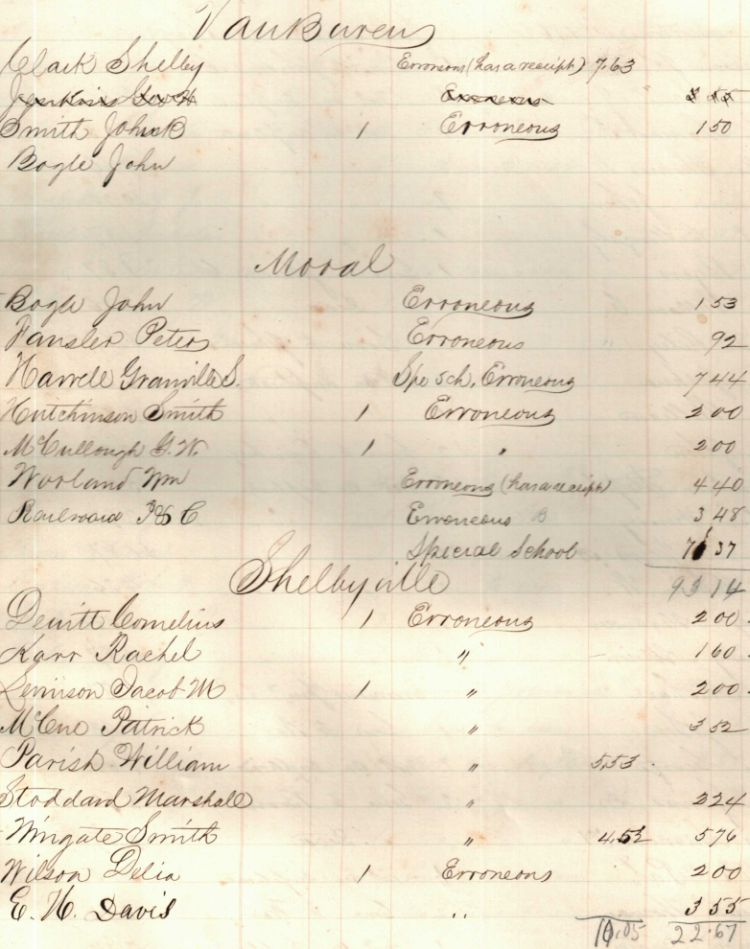 VanBuren
Clark Shelby Erroneous (has a receipt) 7.63
Jenkins Geo H Erroneous 3 55
Smith John B 1 Erroneous 1 50
Bogle John
Moral
Bogle John Erroneous 1 53
Fansler Peter Erroneous 92
Harrell Granville S. Spe sch. Erroneous 7 44
Hutchinson Smith 1 Erroneous 2 00
McCullough G. W. 1 " 2 00
Worland Wm Erroneous (has a receipt) 4 40
Railroad Erroneous 3 48
Special School 37
Shelbyville 14
Dewitt Cornelius 1 Erroneous 2 00
Karr Rachel " 1 60
Lewison Jacob M 1 " 2 00
Patrick " 3 52
Parish William " 5,53
Stoddard Marshall " 2 24
Wingate Smith " 4,52 5 76
Wilson Delia 1 Erroneous 2 00
E. H. Davis " 3 55
10.05 22.67